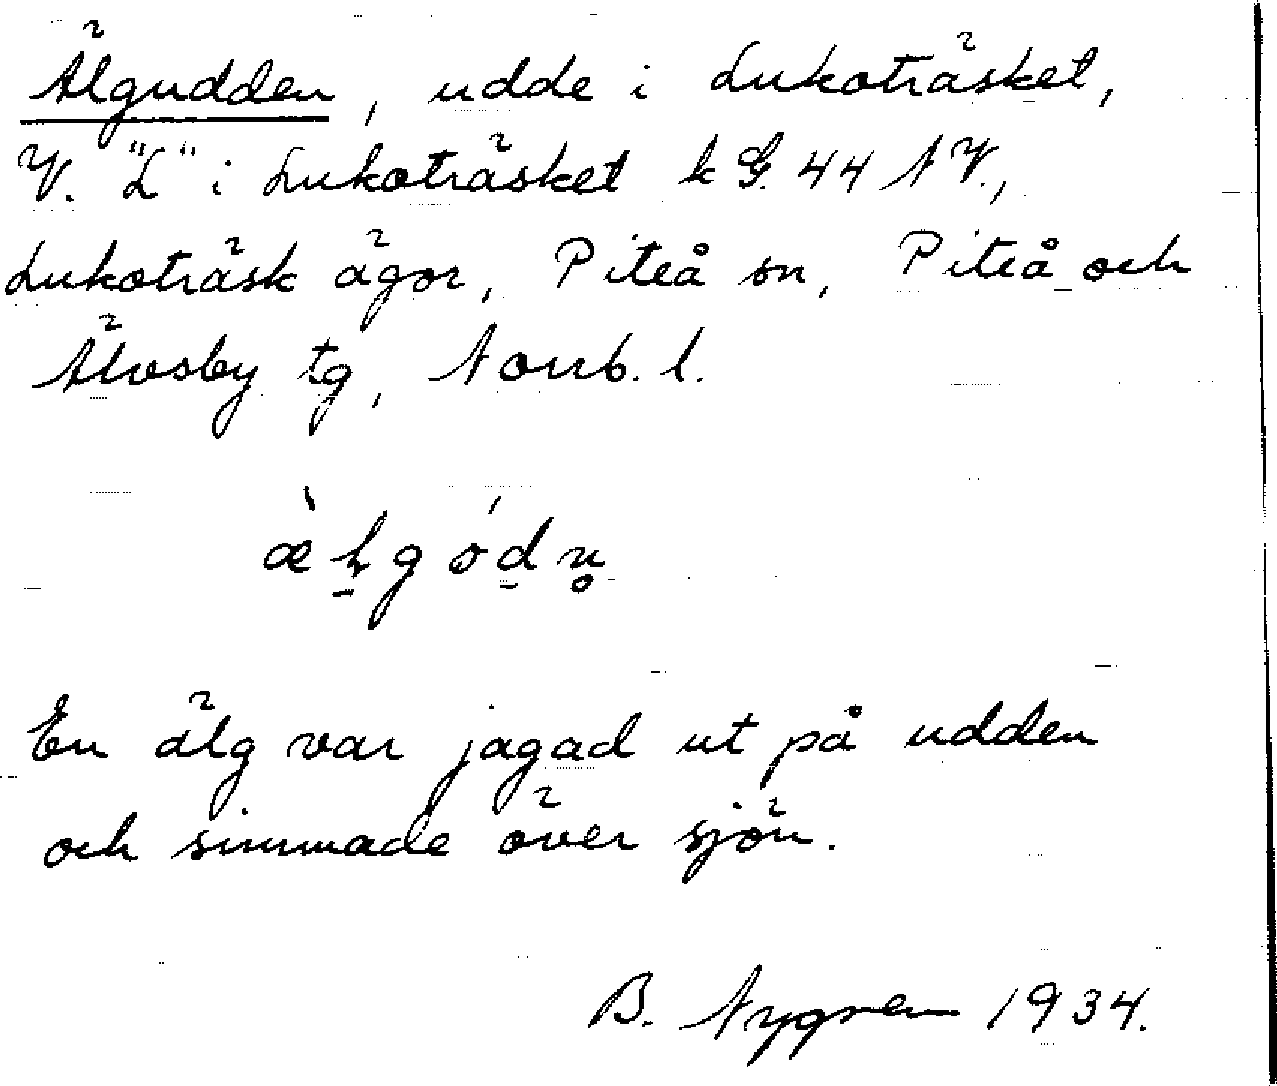 Älgudden, udde i Lukoträsket,
V. "L" i Lukoträsket k G. 44 NV.,
Lukoträsk ägor, Piteå sn, Piteå och
Älvsby tg, Norrb. l.
En älg var jagad ut på udden
och simmade över sjön.
B. Nygren 1934.